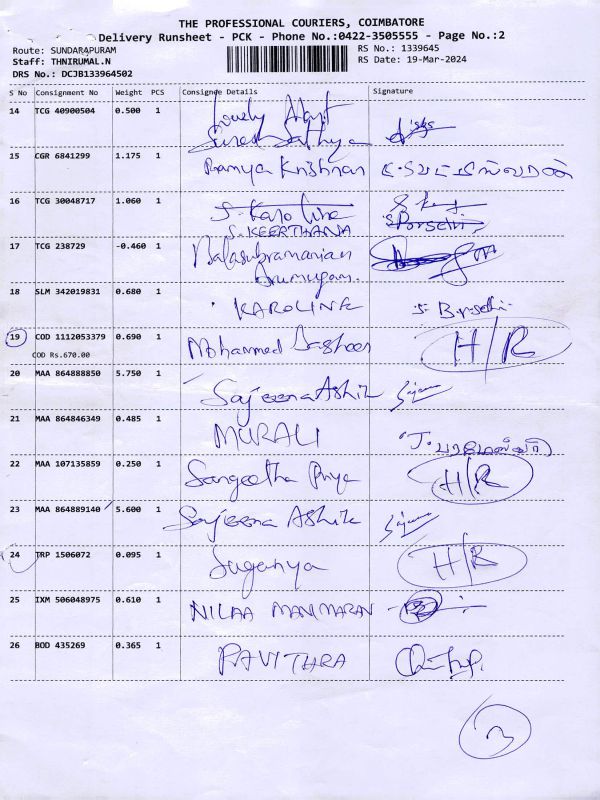 THE PROFESSIONAL COURIERS, COIMBATORE
Delivery Runsheet - PCK - Phone No.:0422-3505555 - Page No.:2
Route: SUNDARAPURAM RS No.: 1339645
Staff: THNIRUMAL.N RS Date: 19-Mar-2024
DRS No.: DCJB133964502
S No Consignment No Weight PCS Consignee Details Signature
14 TCG 40900504 0.500 1 Lovely
15 CGR 6841299 1.175 1 Ramya Krishnan
16 TCG 30048717 1.060 1 S. Karoline
S. KEERTHANA
17 TCG 238729 -0.460 1 Balasubramanian
Arumugam.
18 SLM 342019831 0.680 1 KAROLINE
19 COD 1112053379 0.690 1 Mohammed H/R
COD Rs.670.00
20 MAA 864888850 5.750 1 Sajeena Ashik
21 MAA 864846349 0.485 1 MURALI
22 MAA 107135859 0.250 1 Sangeetha Priya H/R
23 MAA 864889140 5.600 1 Sajeena Ashik
24 TRP 1506072 0.095 1 Suganya H/R
25 IXM 506048975 0.610 1 NILAA MANIMARAN
26 BOD 435269 0.365 1 PAVITHRA